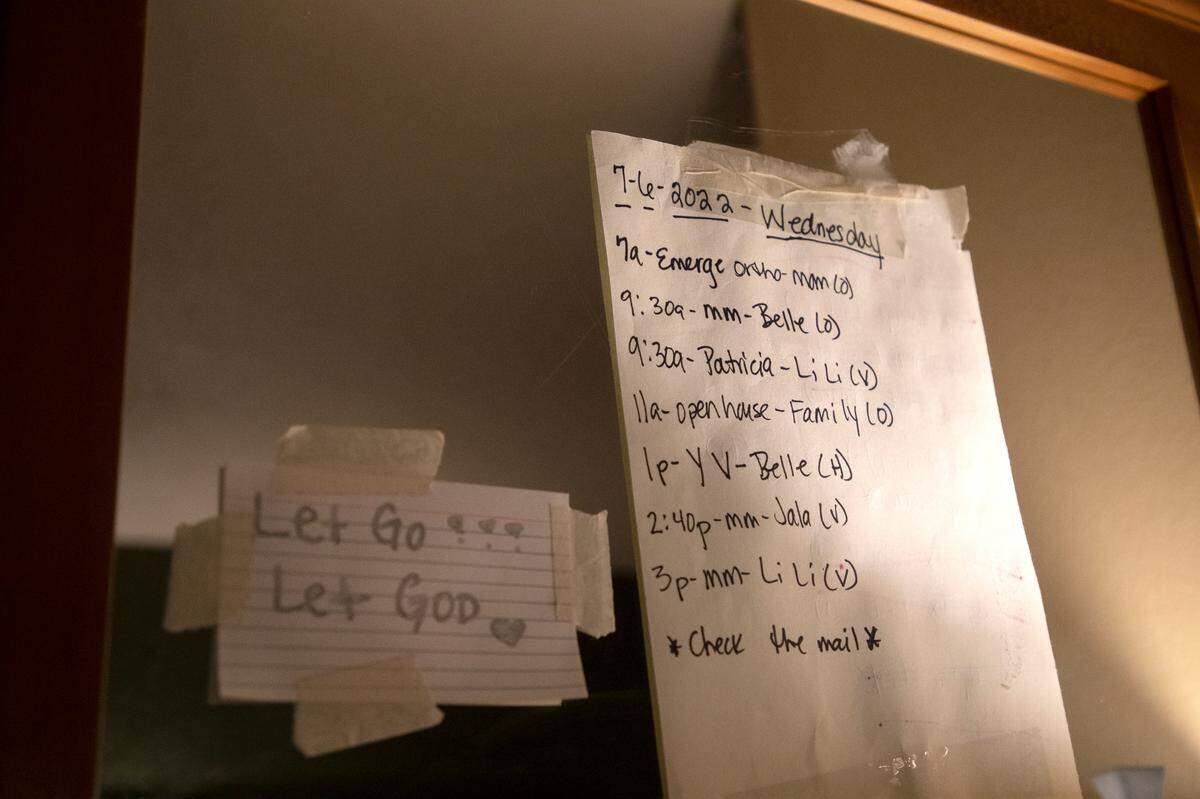 7-6-2022 - Wednesday
7a-Emerge ortho-mom(O)
9:30a-mm-Belle(O)
9:30a-Patricia-LiLi(V)
11a-openhouse-Family(O)
1p-YV-Belle(H)
2:40p-mm-Jala(V)
3p-mm-LiLi(V)
*Check the mail*
Let Go !!!
Let GOD ♥